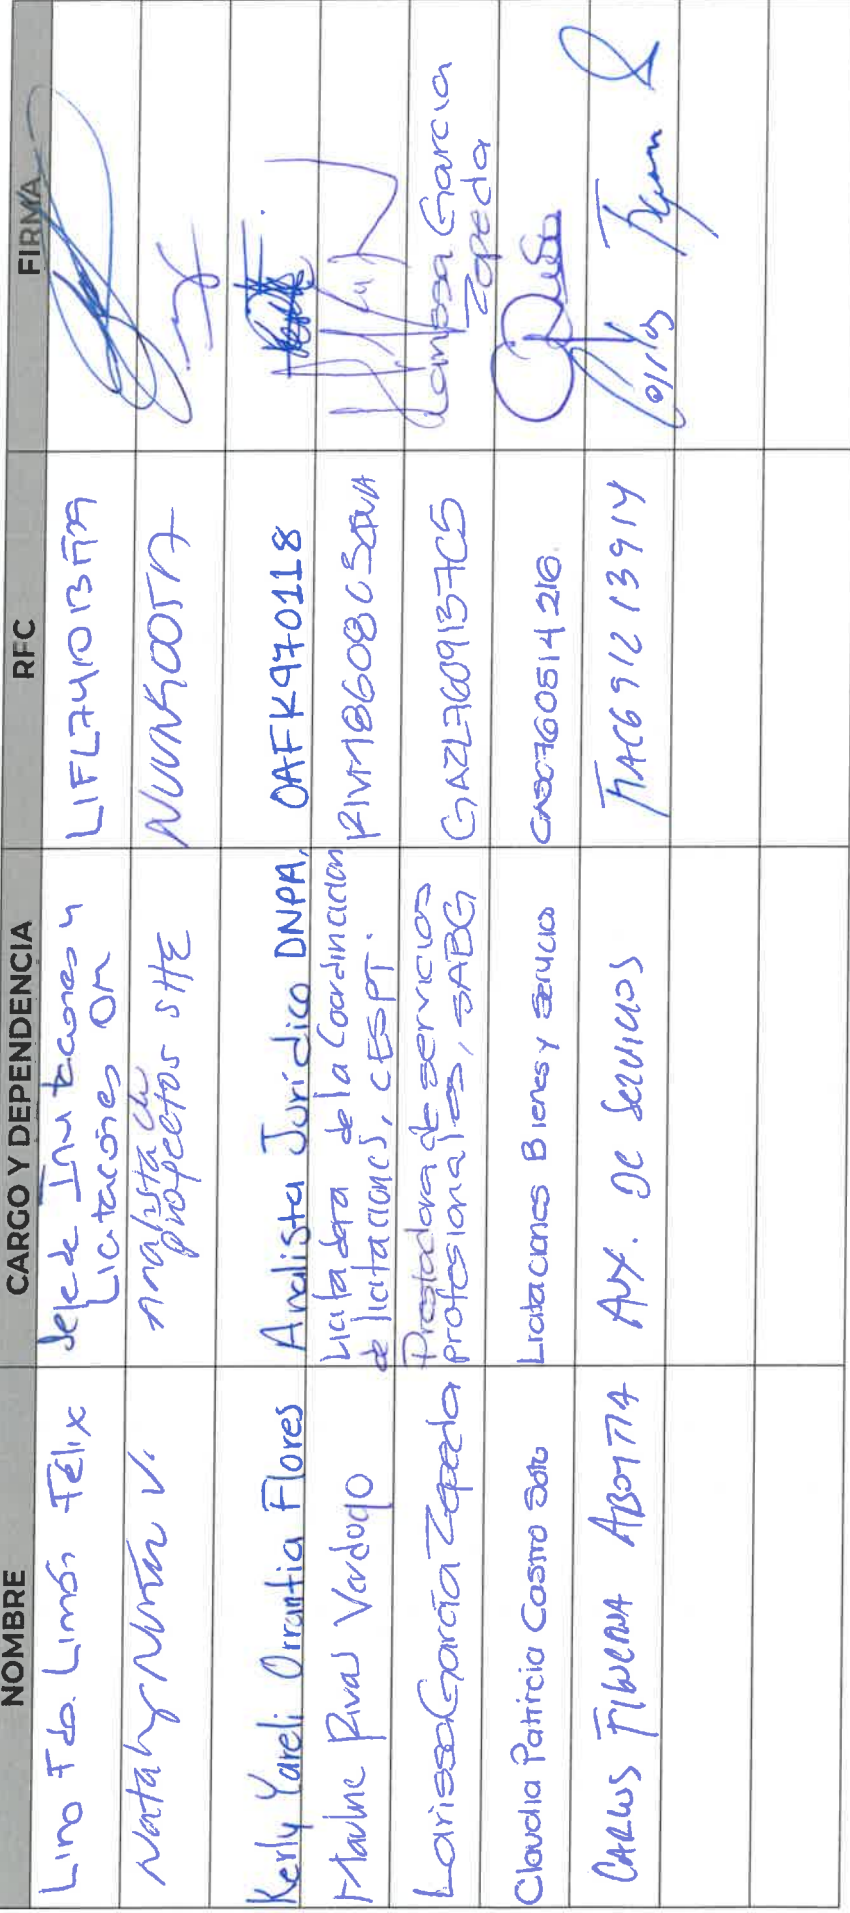 NOMBRE CARGO Y DEPENDENCIA RFC FIRMA
Lino Fdo. Limón Félix
Jefe de Invitaciones y
Licitaciones OM
Nataly Núñez V.
Analista de
proyectos SHE
Kerly Yareli Orrantia Flores Analista Jurídico DNPA, OAFK970118
Rivas Verdugo
Licitadora de la Coordinacion
de licitaciones, CESPT.
Larissa García Zepeda
Prestadora de servicios
profesionales, SABG
GAZL7609137C5
Larissa Garcia
Zepeda
Claudia Patricia Castro Soto Licitaciones Bienes y Servicios CASC760514216.
CARLOS Aux. De Servicios
Carlos